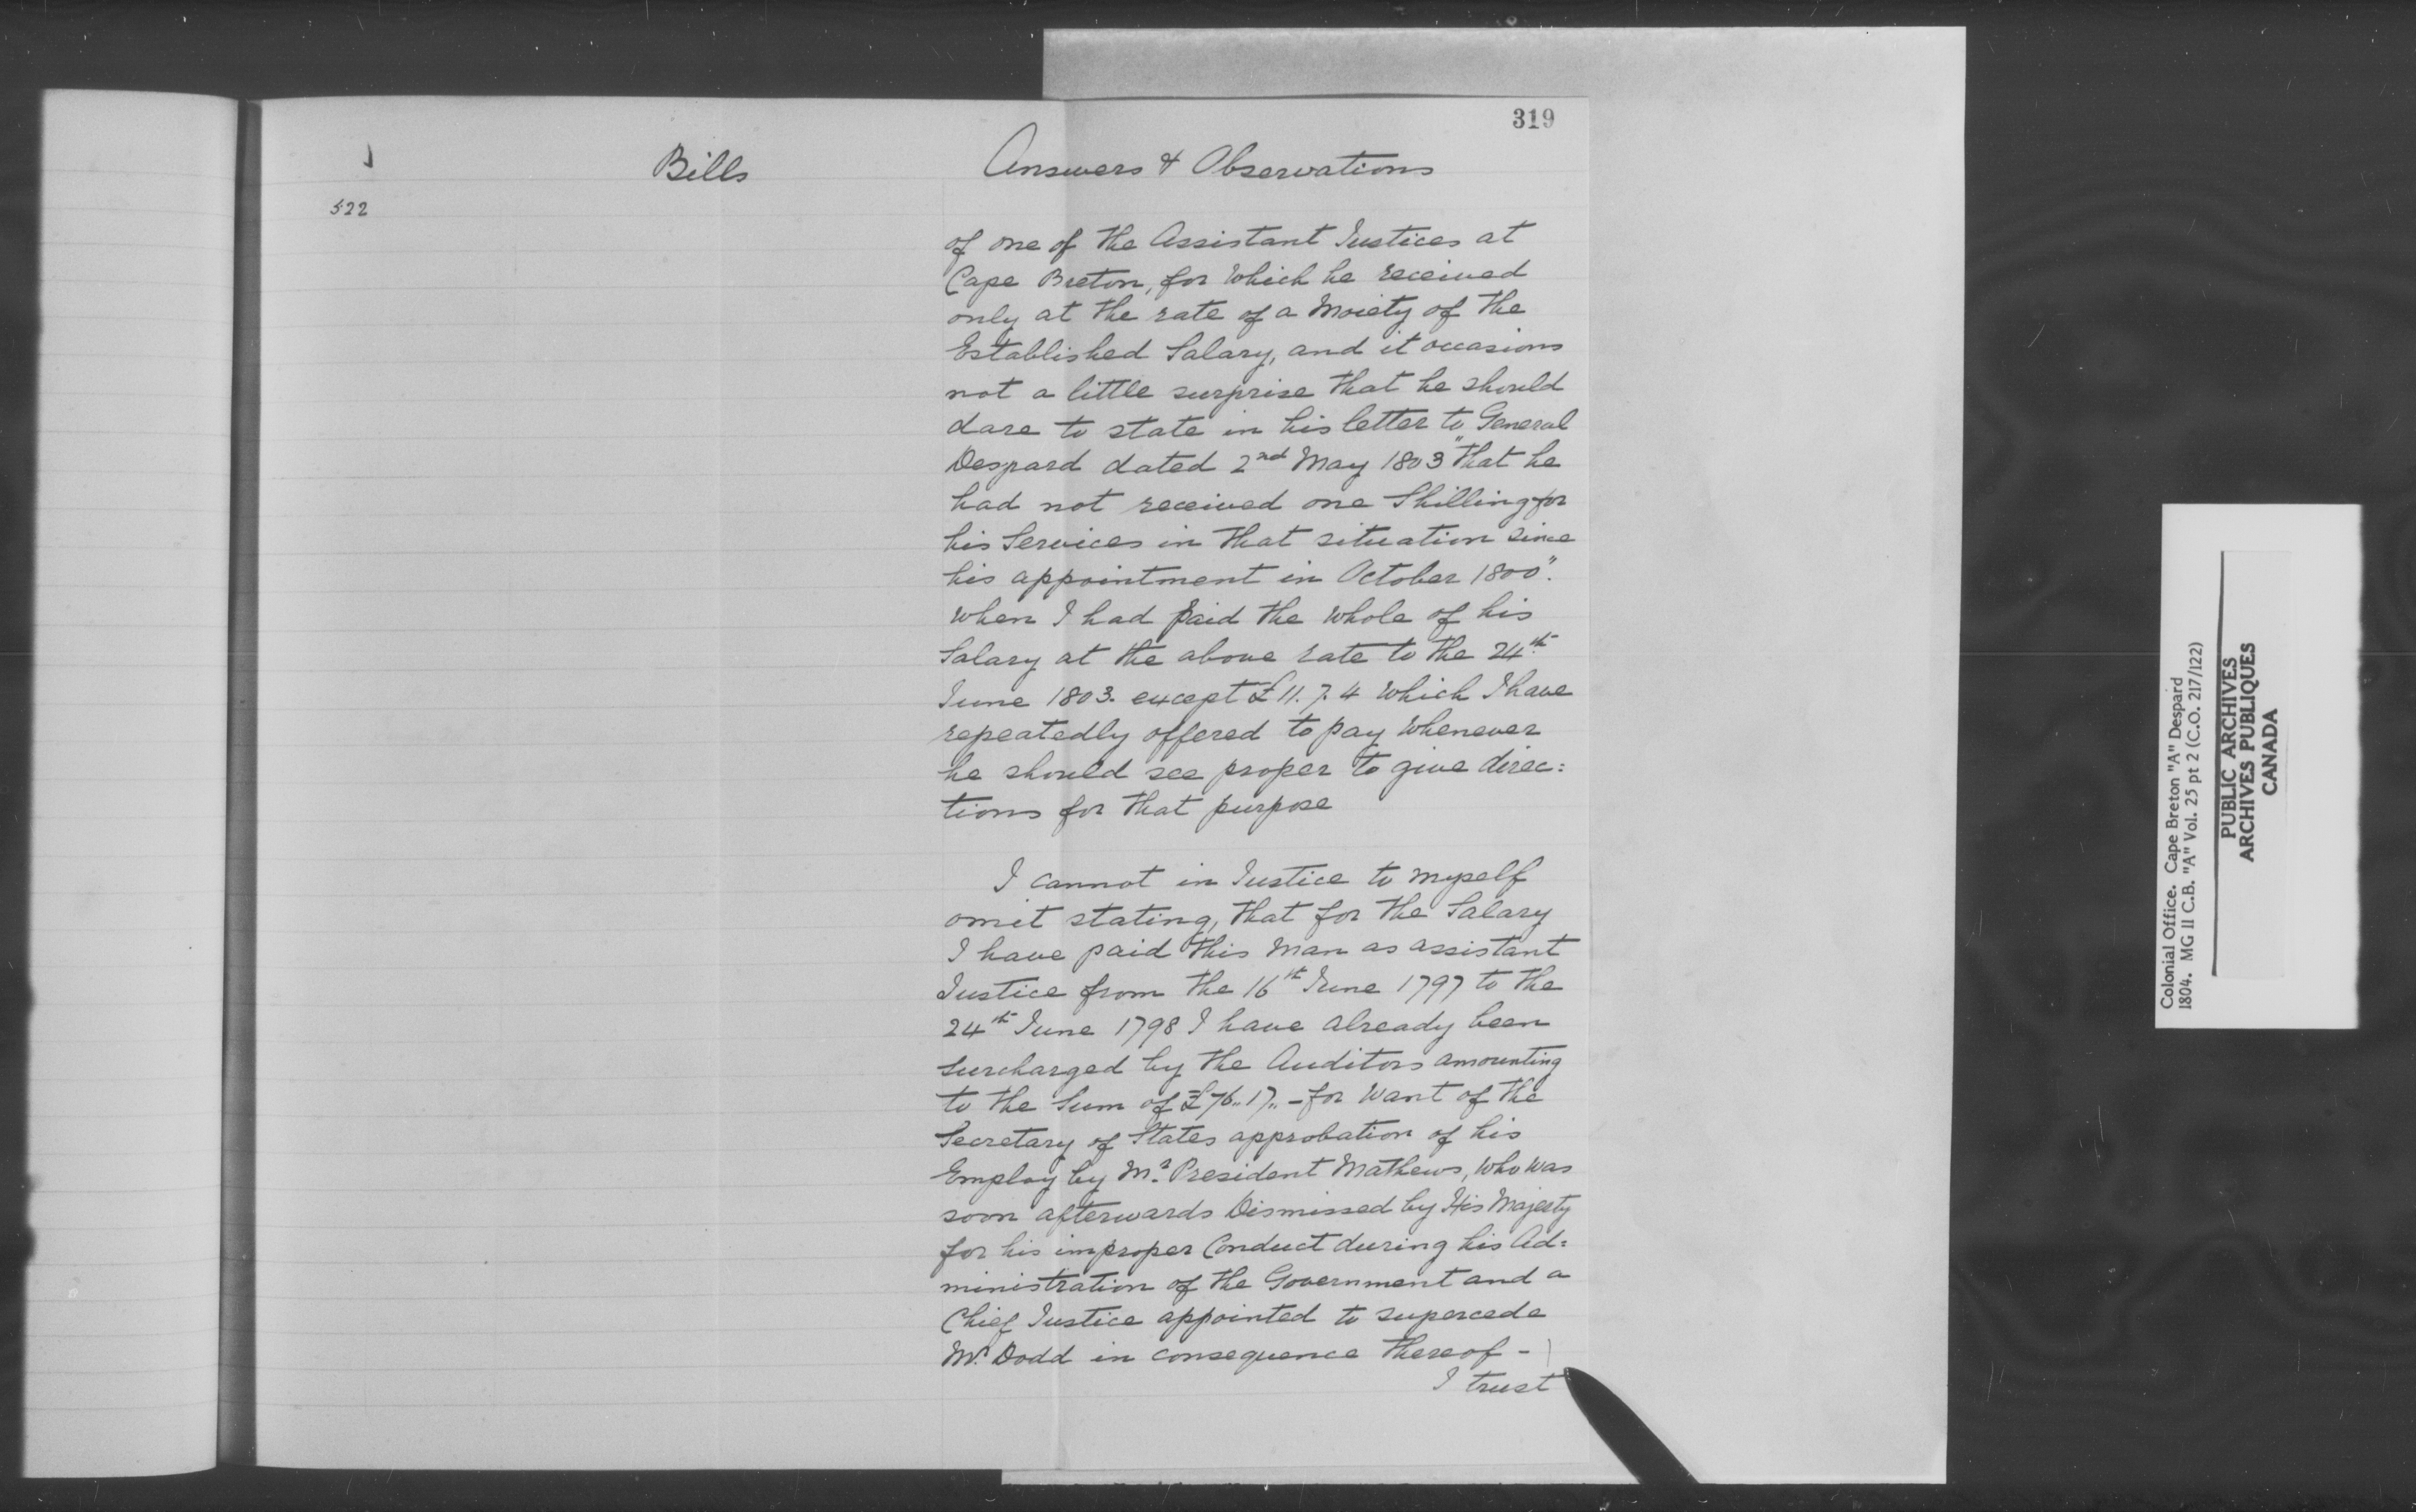 319
J
Bills
Answers & Observations
522
of one of the Assistant Justices at
Cape Breton, for which he received
only at the rate of a Moiety of the
Established Salary, and it occasions
not a little surprise that he should
dare to state in his letter to General
Despard dated 2nd May 1803 "that he
had not received one Shilling for
his Services in that situation since
his appointment in October 1800".
When I had paid the whole of his
Salary at the above rate to the 24th
June 1803. except £11.7.4 which I have
repeatedly offered to pay whenever
he should see proper to give direc:
tions for that purpose
I cannot in Justice to myself
omit stating, that for the Salary
I have paid this Man as assistant
Justice from the 16th June 1797 to the
24th June 1798 I have already been
surcharged by the Auditors amounting
to the Sum of £76..17..- for want of the
Secretary of States approbation of his
Employ by Mr. President Mathews, who was
soon afterwards Dismissed by His Majesty
for his improper Conduct during his Ad:
ministration of the Government and a
Chief Justice appointed to supercede
Mr. Dodd in consequence thereof -
I trust
Colonial Office. Cape Breton "A" Despard
1804. MG II C.B. "A" Vol. 25 pt 2 (C.O. 217/122)
PUBLIC ARCHIVES
ARCHIVES PUBLIQUES
CANADA